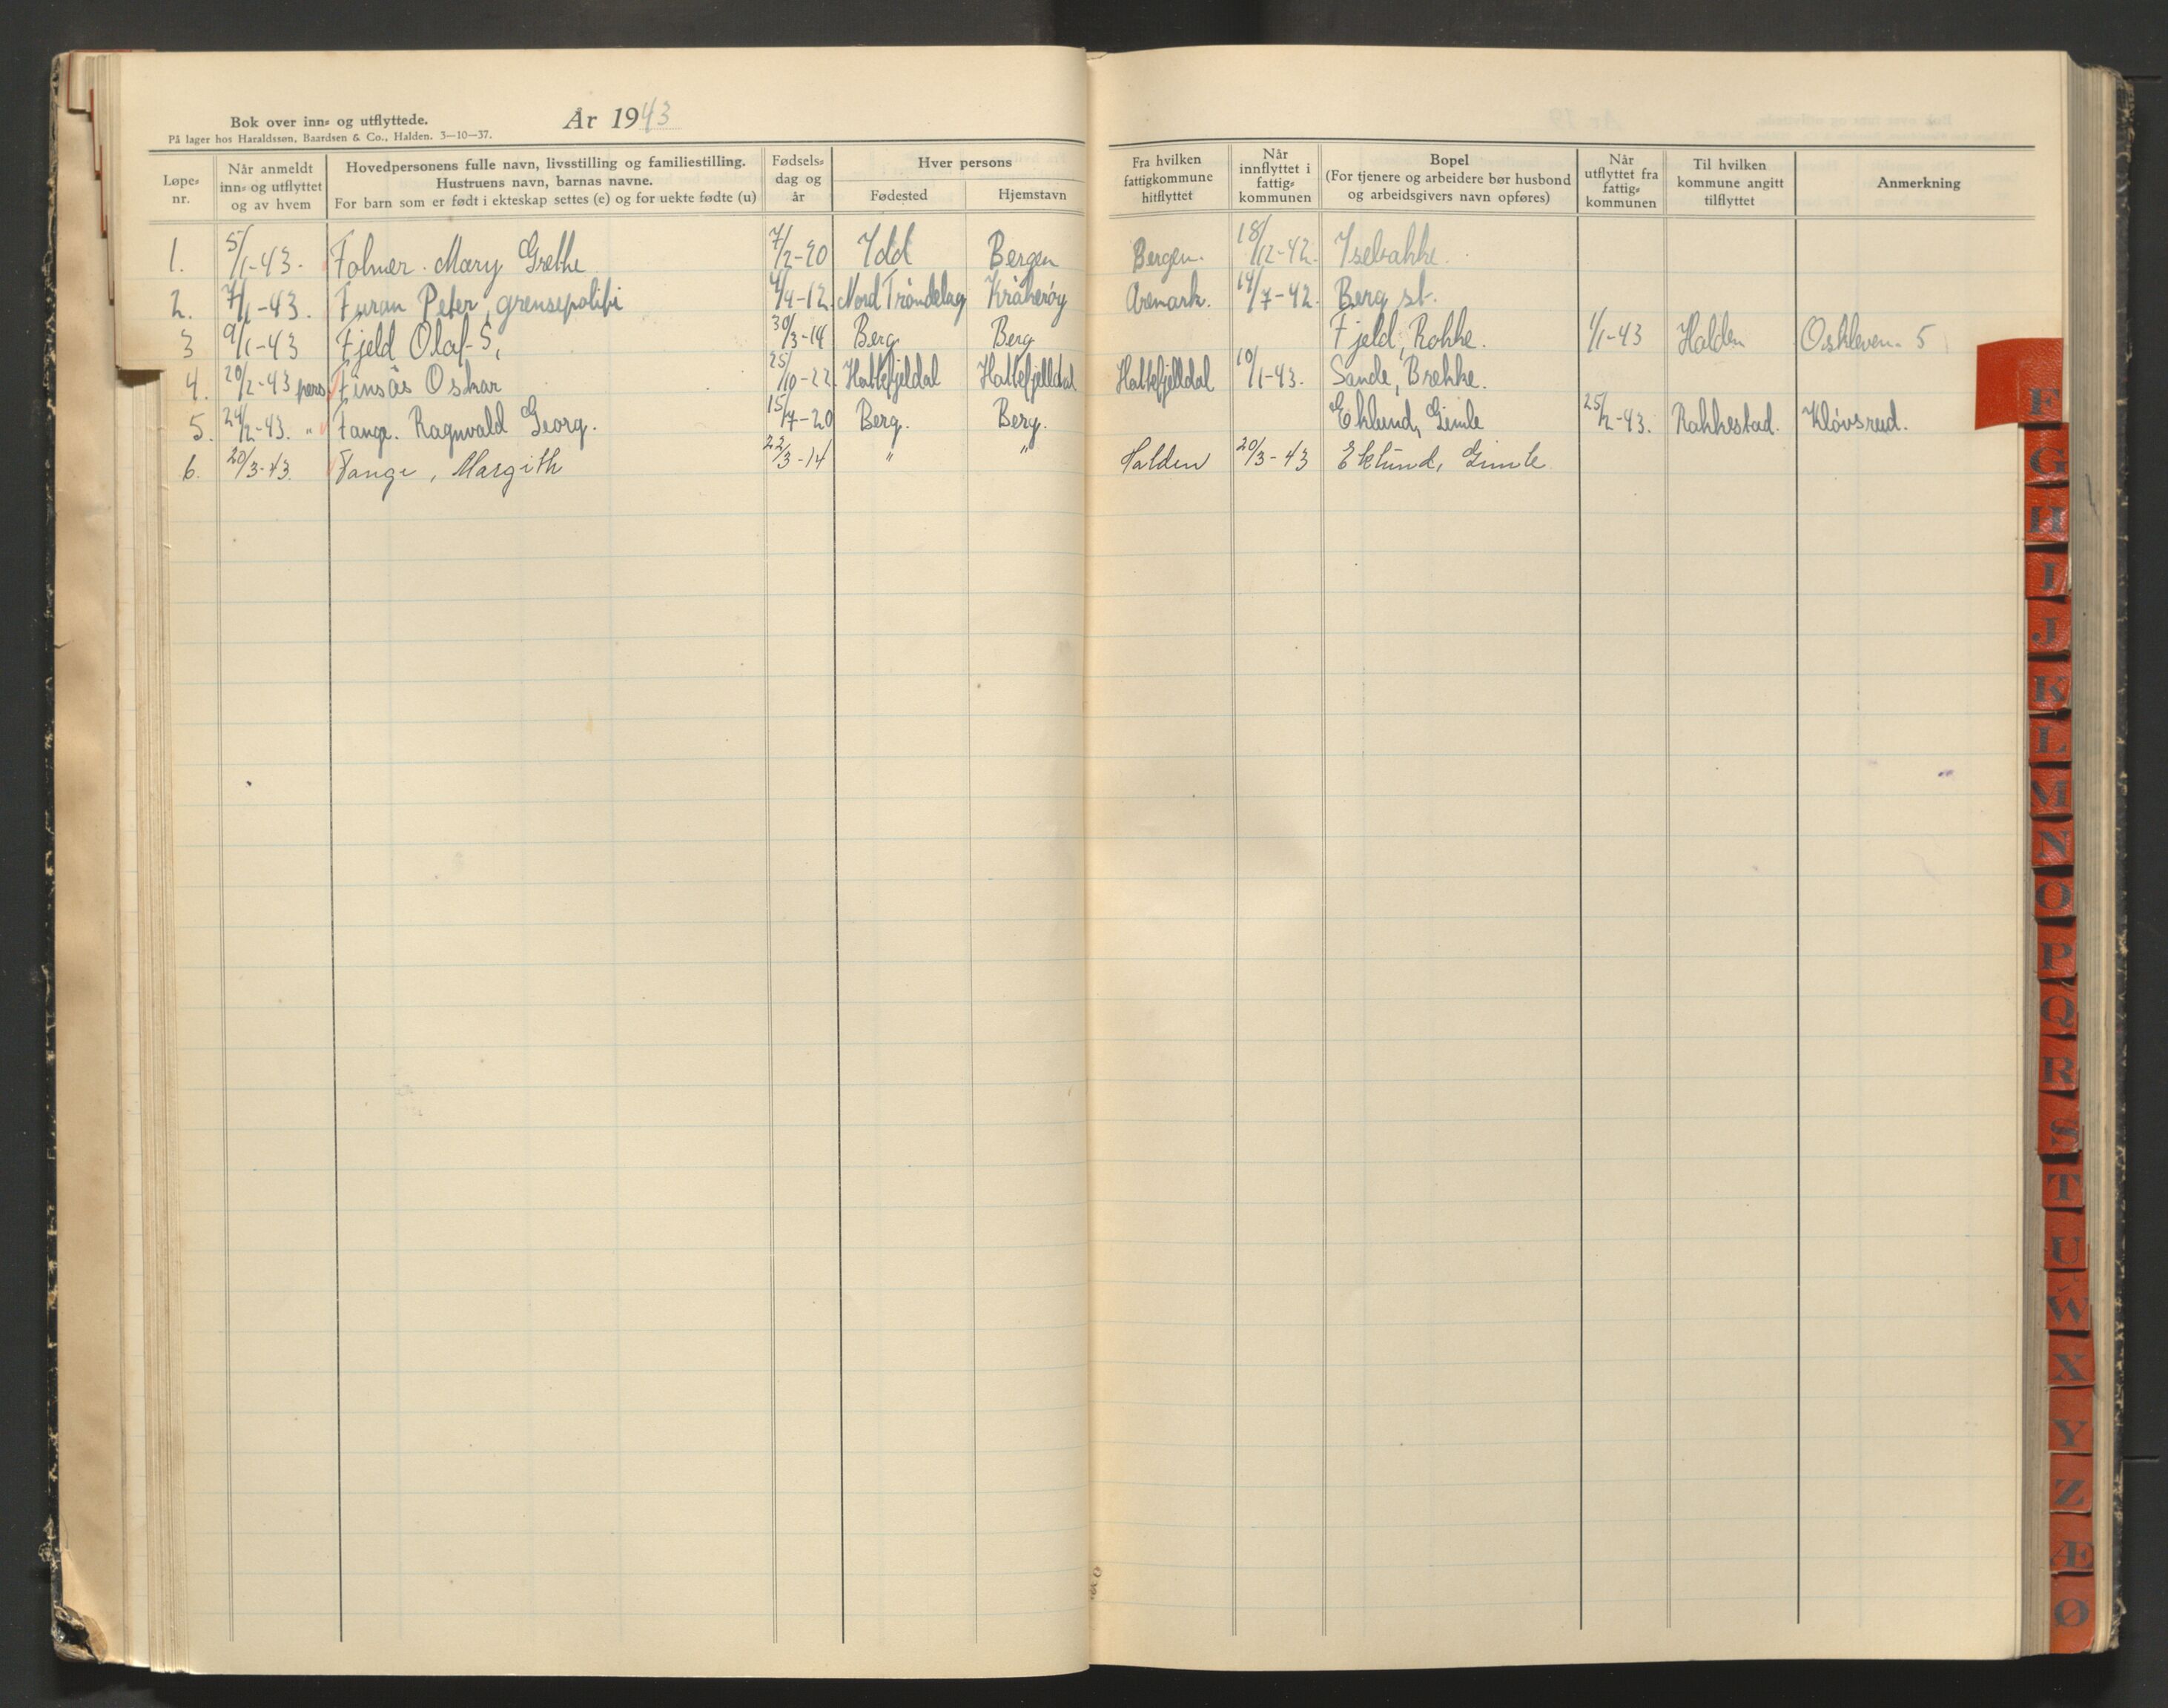 Bok over inn- og utflyttede.
År 1943
På lager hos Haraldssøn, Baardsen & Co., Halden. 3—10—37.
Løpe-nr.
Når anmeldt inn- og utflyttet og av hvem
Hovedpersonens fulle navn, livsstilling og familiestilling.
Hustruens navn, barnas navne.
For barn som er født i ekteskap settes (e) og for uekte fødte (u)
Fødsels-dag og år
Hver persons
Fødested
Hjemstavn
Fra hvilken fattigkommune hitflyttet
Når innflyttet i fattig-kommunen
Bopel
(For tjenere og arbeidere bør husbond og arbeidsgivers navn opføres)
Når utflyttet fra fattig-kommunen
Til hvilken kommune angitt tilflyttet
Anmerkning
1. 5/1-43. Folmer. Mary Grethe 7/2-20 Idd Bergen Bergen. 18/12-42. Isebakke.
2. 7/1-43. Furan Peter, grensepoliti 4/4-12. Nord Trøndelag Kråkerøy Aremark. 14/7-42. Berg st.
3 9/1-43 Fjeld Olaf S, 30/3-14 Berg Berg Fjeld, Rokke. 1/1-43 Halden Oskleven. 5
4. 20/2-43 pers Finsås Oskar 25/10-22. Hattefjeldal Hattefjelldal Hattefjelldal 10/1-43. Sande, Brekke.
5. 24/2-43. " Fange. Ragnvald Georg. 15/7-20 Berg. Berg. Eklund, Gimle 25/2-43. Rakkestad. Kløvsrud.
6. 20/3-43. Fange, Margith 22/3-14 " " Halden 20/3-43 Eklund, Gimle
F
G
H
I
J
K
L
M
N
O
P
Q
R
S
T
U
W
X
Y
Z
Æ
Ø